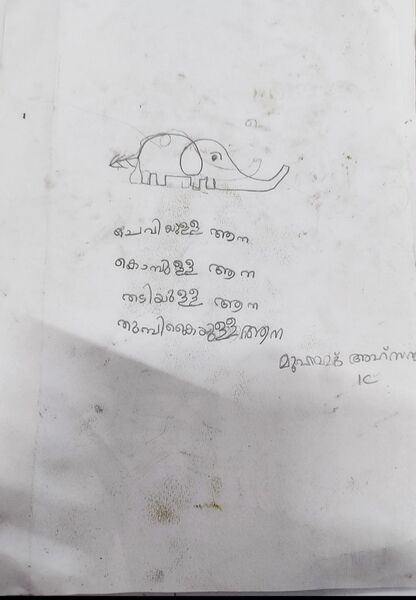 ചെവിയുള്ള ആന
കൊമ്പുള്ള ആന
തടിയുള്ള ആന
തുമ്പികൈയുള്ള ആന
അഹ്സൻ
1C